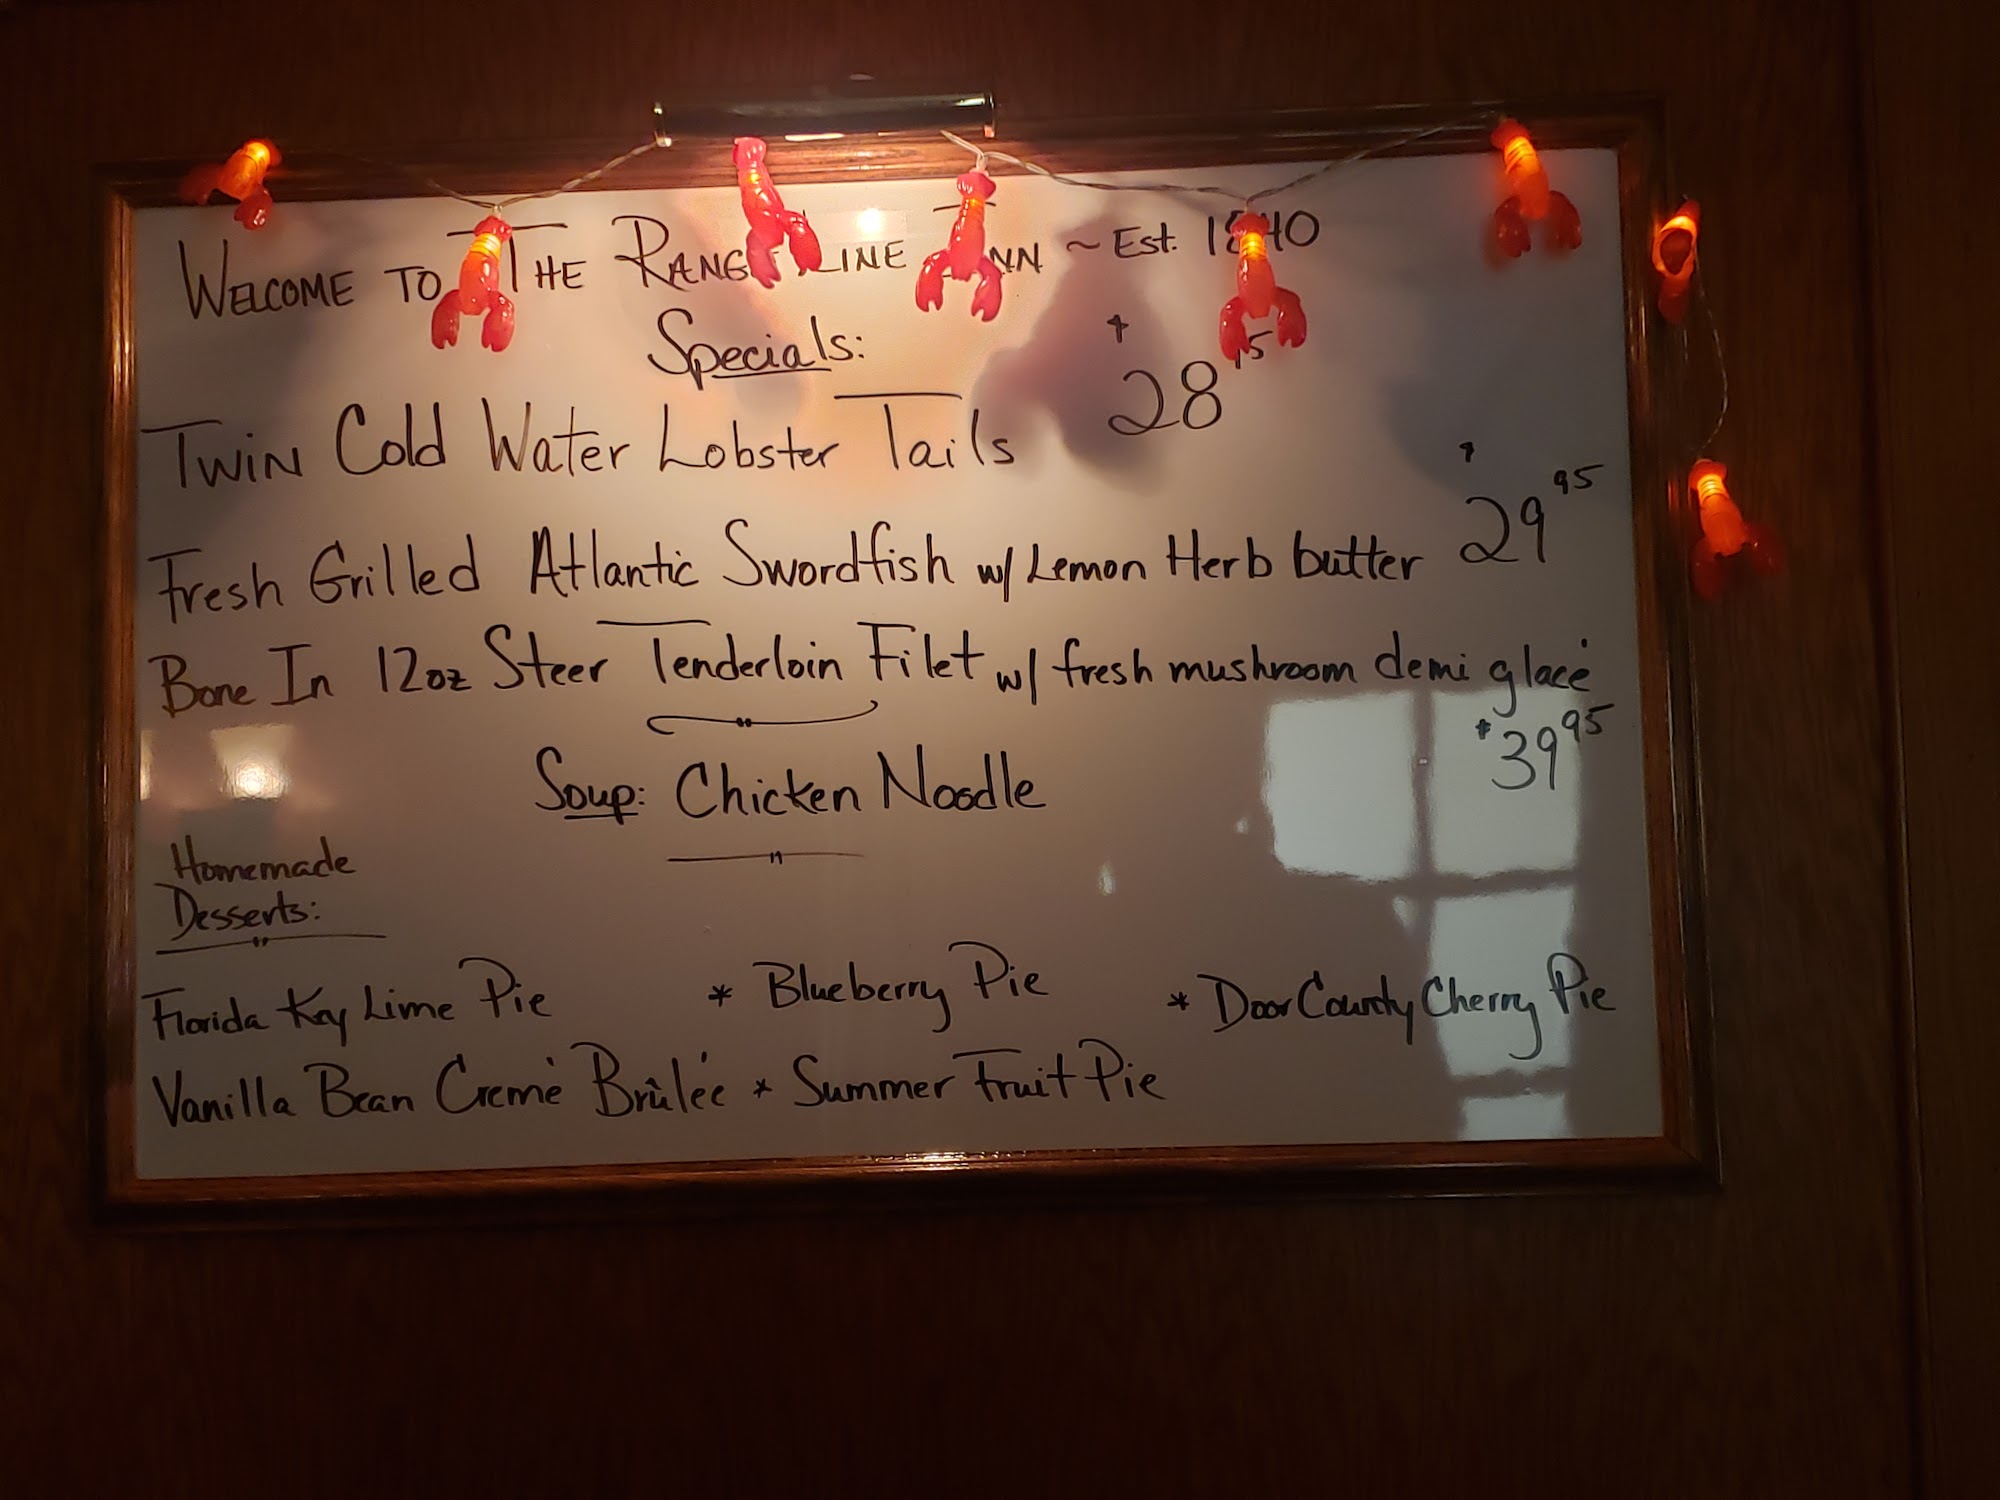 WELCOME TO THE RANGE LINE INN ~ Est. 1840
Specials:
TWIN Cold Water Lobster Tails $28
Fresh Grilled Atlantic Swordfish w/ Lemon Herb butter $29 95
Bone In 12oz Steer Tenderloin Filet w/ fresh mushroom demi glacé
$39 95
Soup: Chicken Noodle
Homemade
Desserts:
Florida Key Lime Pie * Blueberry Pie * Door County Cherry Pie
Vanilla Bean Cremé Brûlée * Summer Fruit Pie